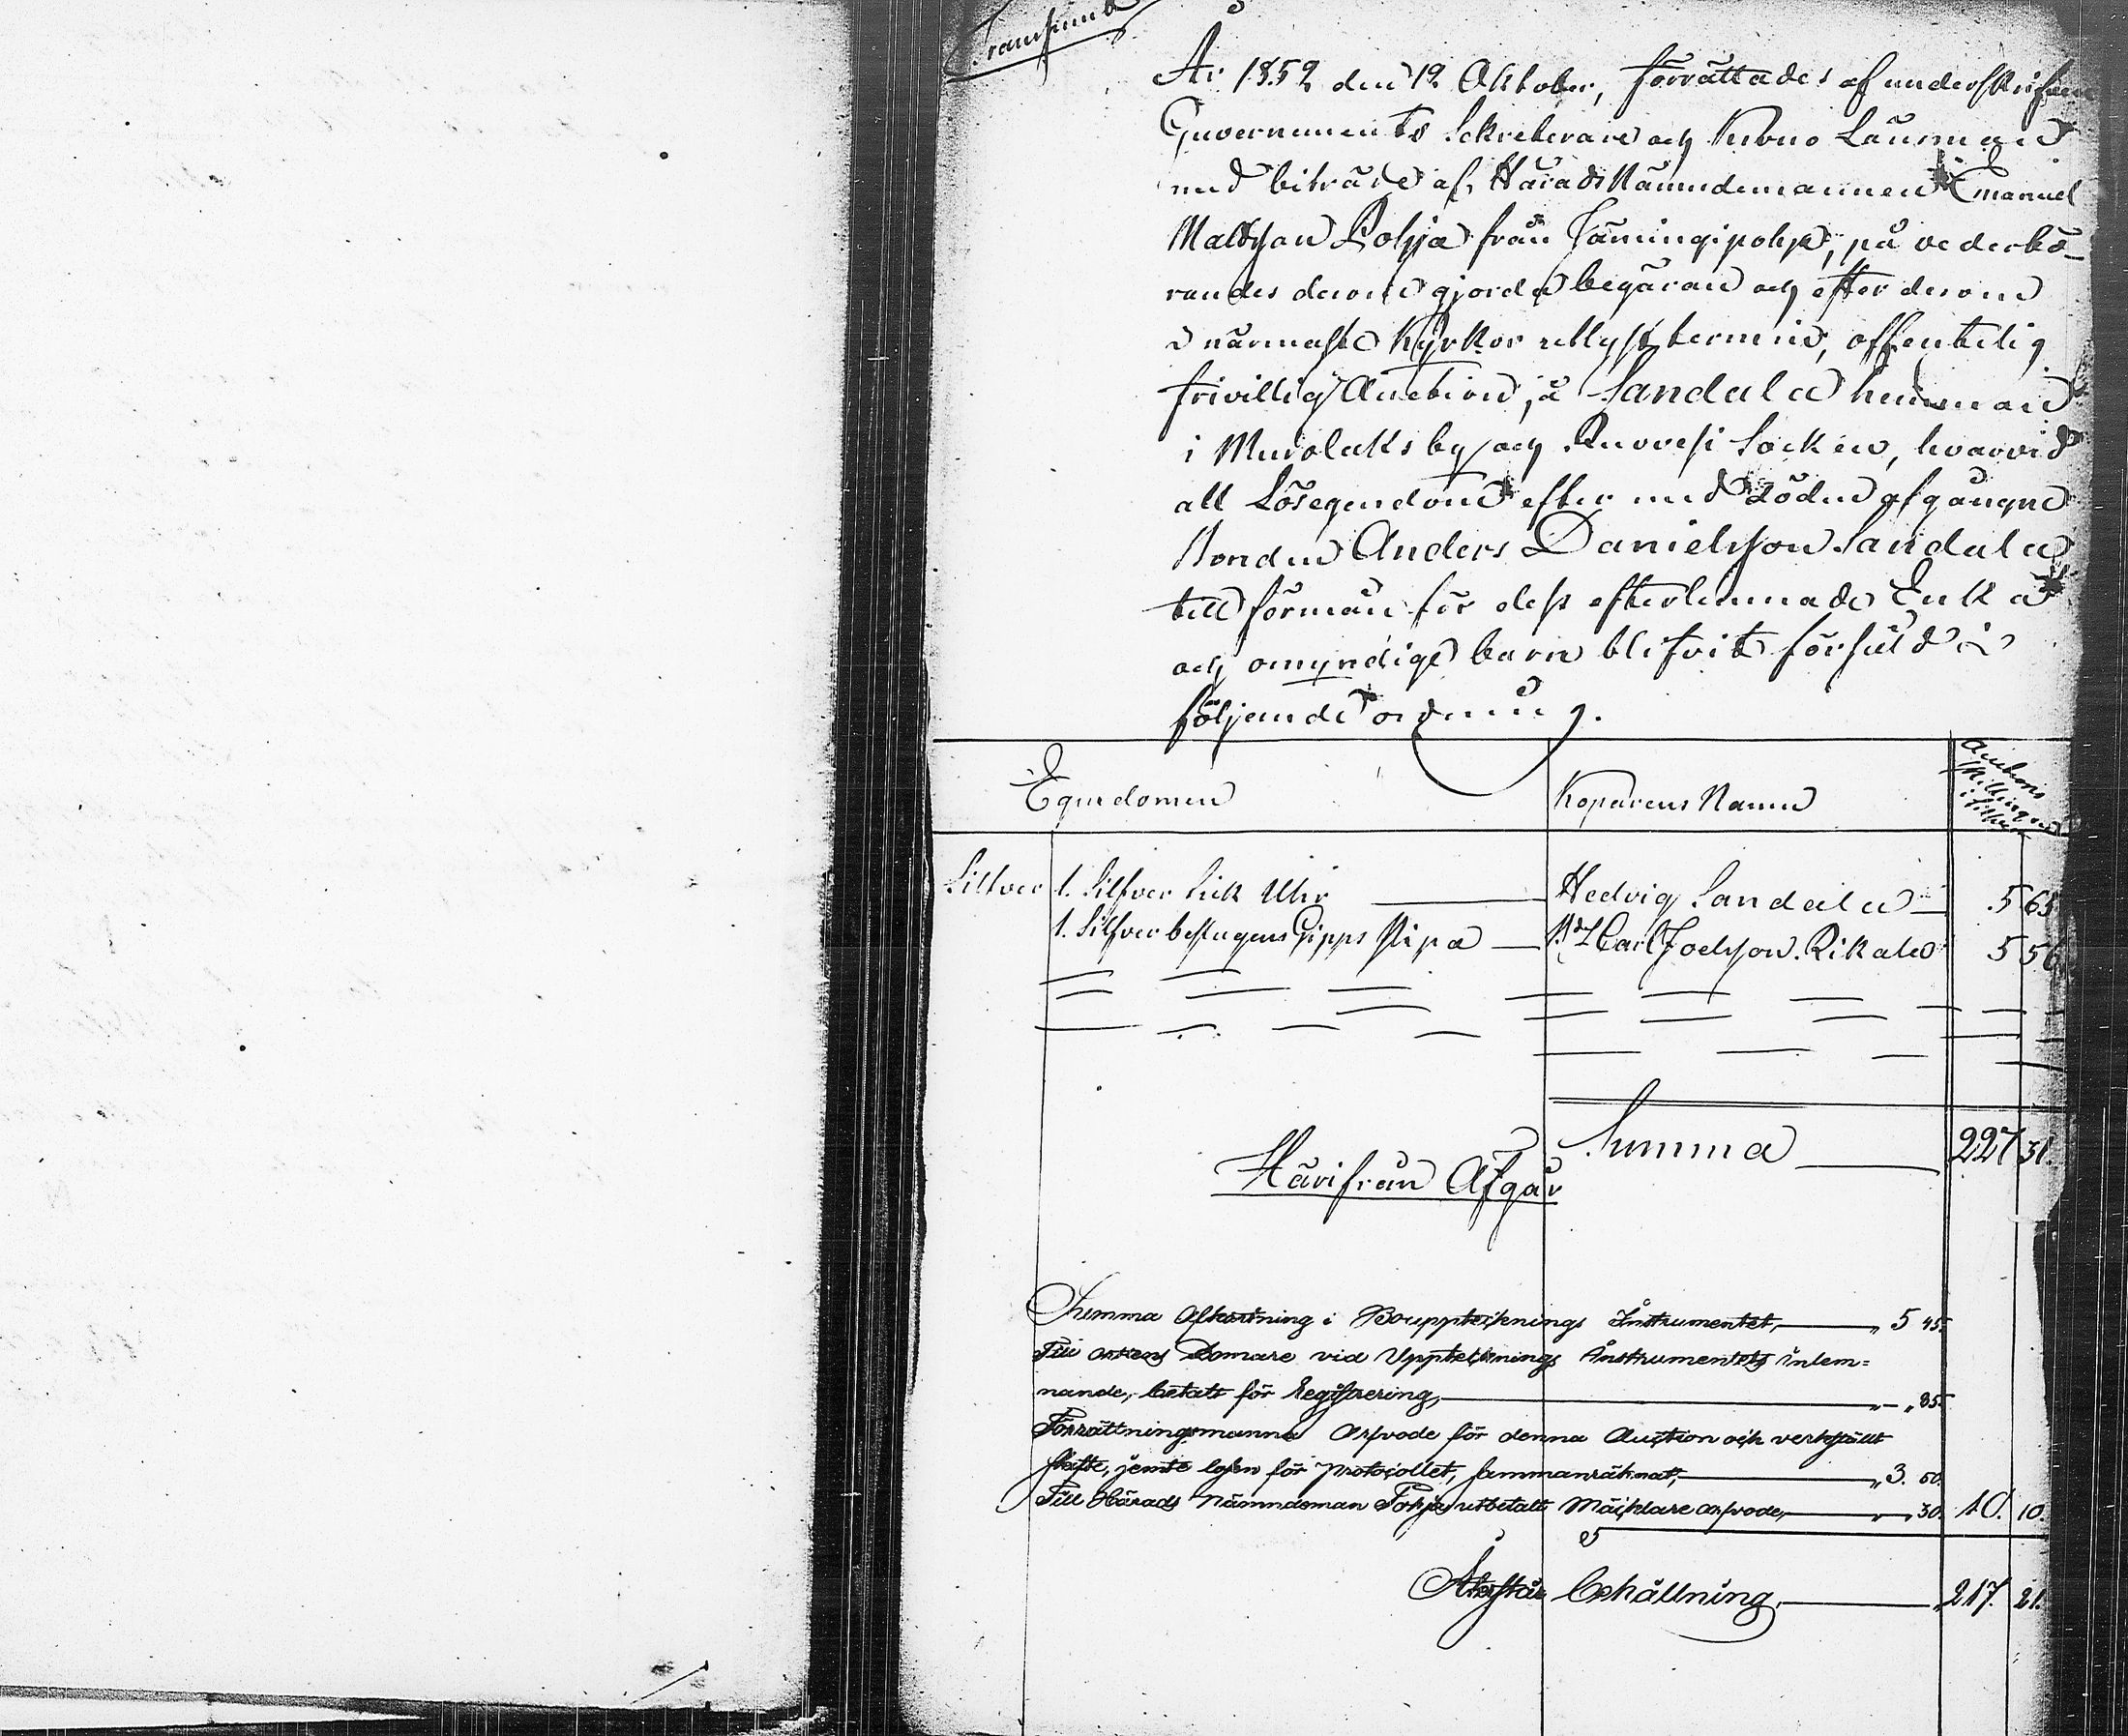 Transsumt
År 1852 den 12 Oktober, förrättades af underskrifne
Guvernements Sekreterare och Krono Länsman
med biträde af Härads Nämndemannen Emanuel
Mattsson Pohja från Jäminqipohja, på vederbö-
randes derom gjorda begäran och efter derom
i närmaste Kyrkor utlyst termin, offentelig
frivillig Auction, å Sandala hemman
i Muroleks by och Ruovesi Socken, hvarvid
all Lösegendom efter med döden afgångne
Bonden Anders Danielsson Sandala
till förmån för dess efterlemnade Enka
och omyndige barn blifvit försåld i
följande ordning.
Egendomen Köparens Namn Auctions skillingen i Silfver
Silfver 1. Silfver Fick Uhr Hedvig Sandala 5 65
1. Silfverbeslagen Gipps Pipa Bd Carl Joelsson Rikala 5 56
Summa 227 31.
Härifrån Afgår
Summa Afkortning i Bouppteknings Instrumentet, " 5 45.
Till ortens Domare vid Upptecknings Instrumentets inlem=
nande, betalt för Registrering, " - " 85.
Förrättningsmanna Arfvode för denna Auction och verkstäldt
skifte, jemte lösen för Protocollet, sammanräknat, " 3. 50.
Till Härads Nämndeman Pohja utbetalt Mäcklare arfvode, " 30. 10. 10.
Återstår behållning, 217. 21.